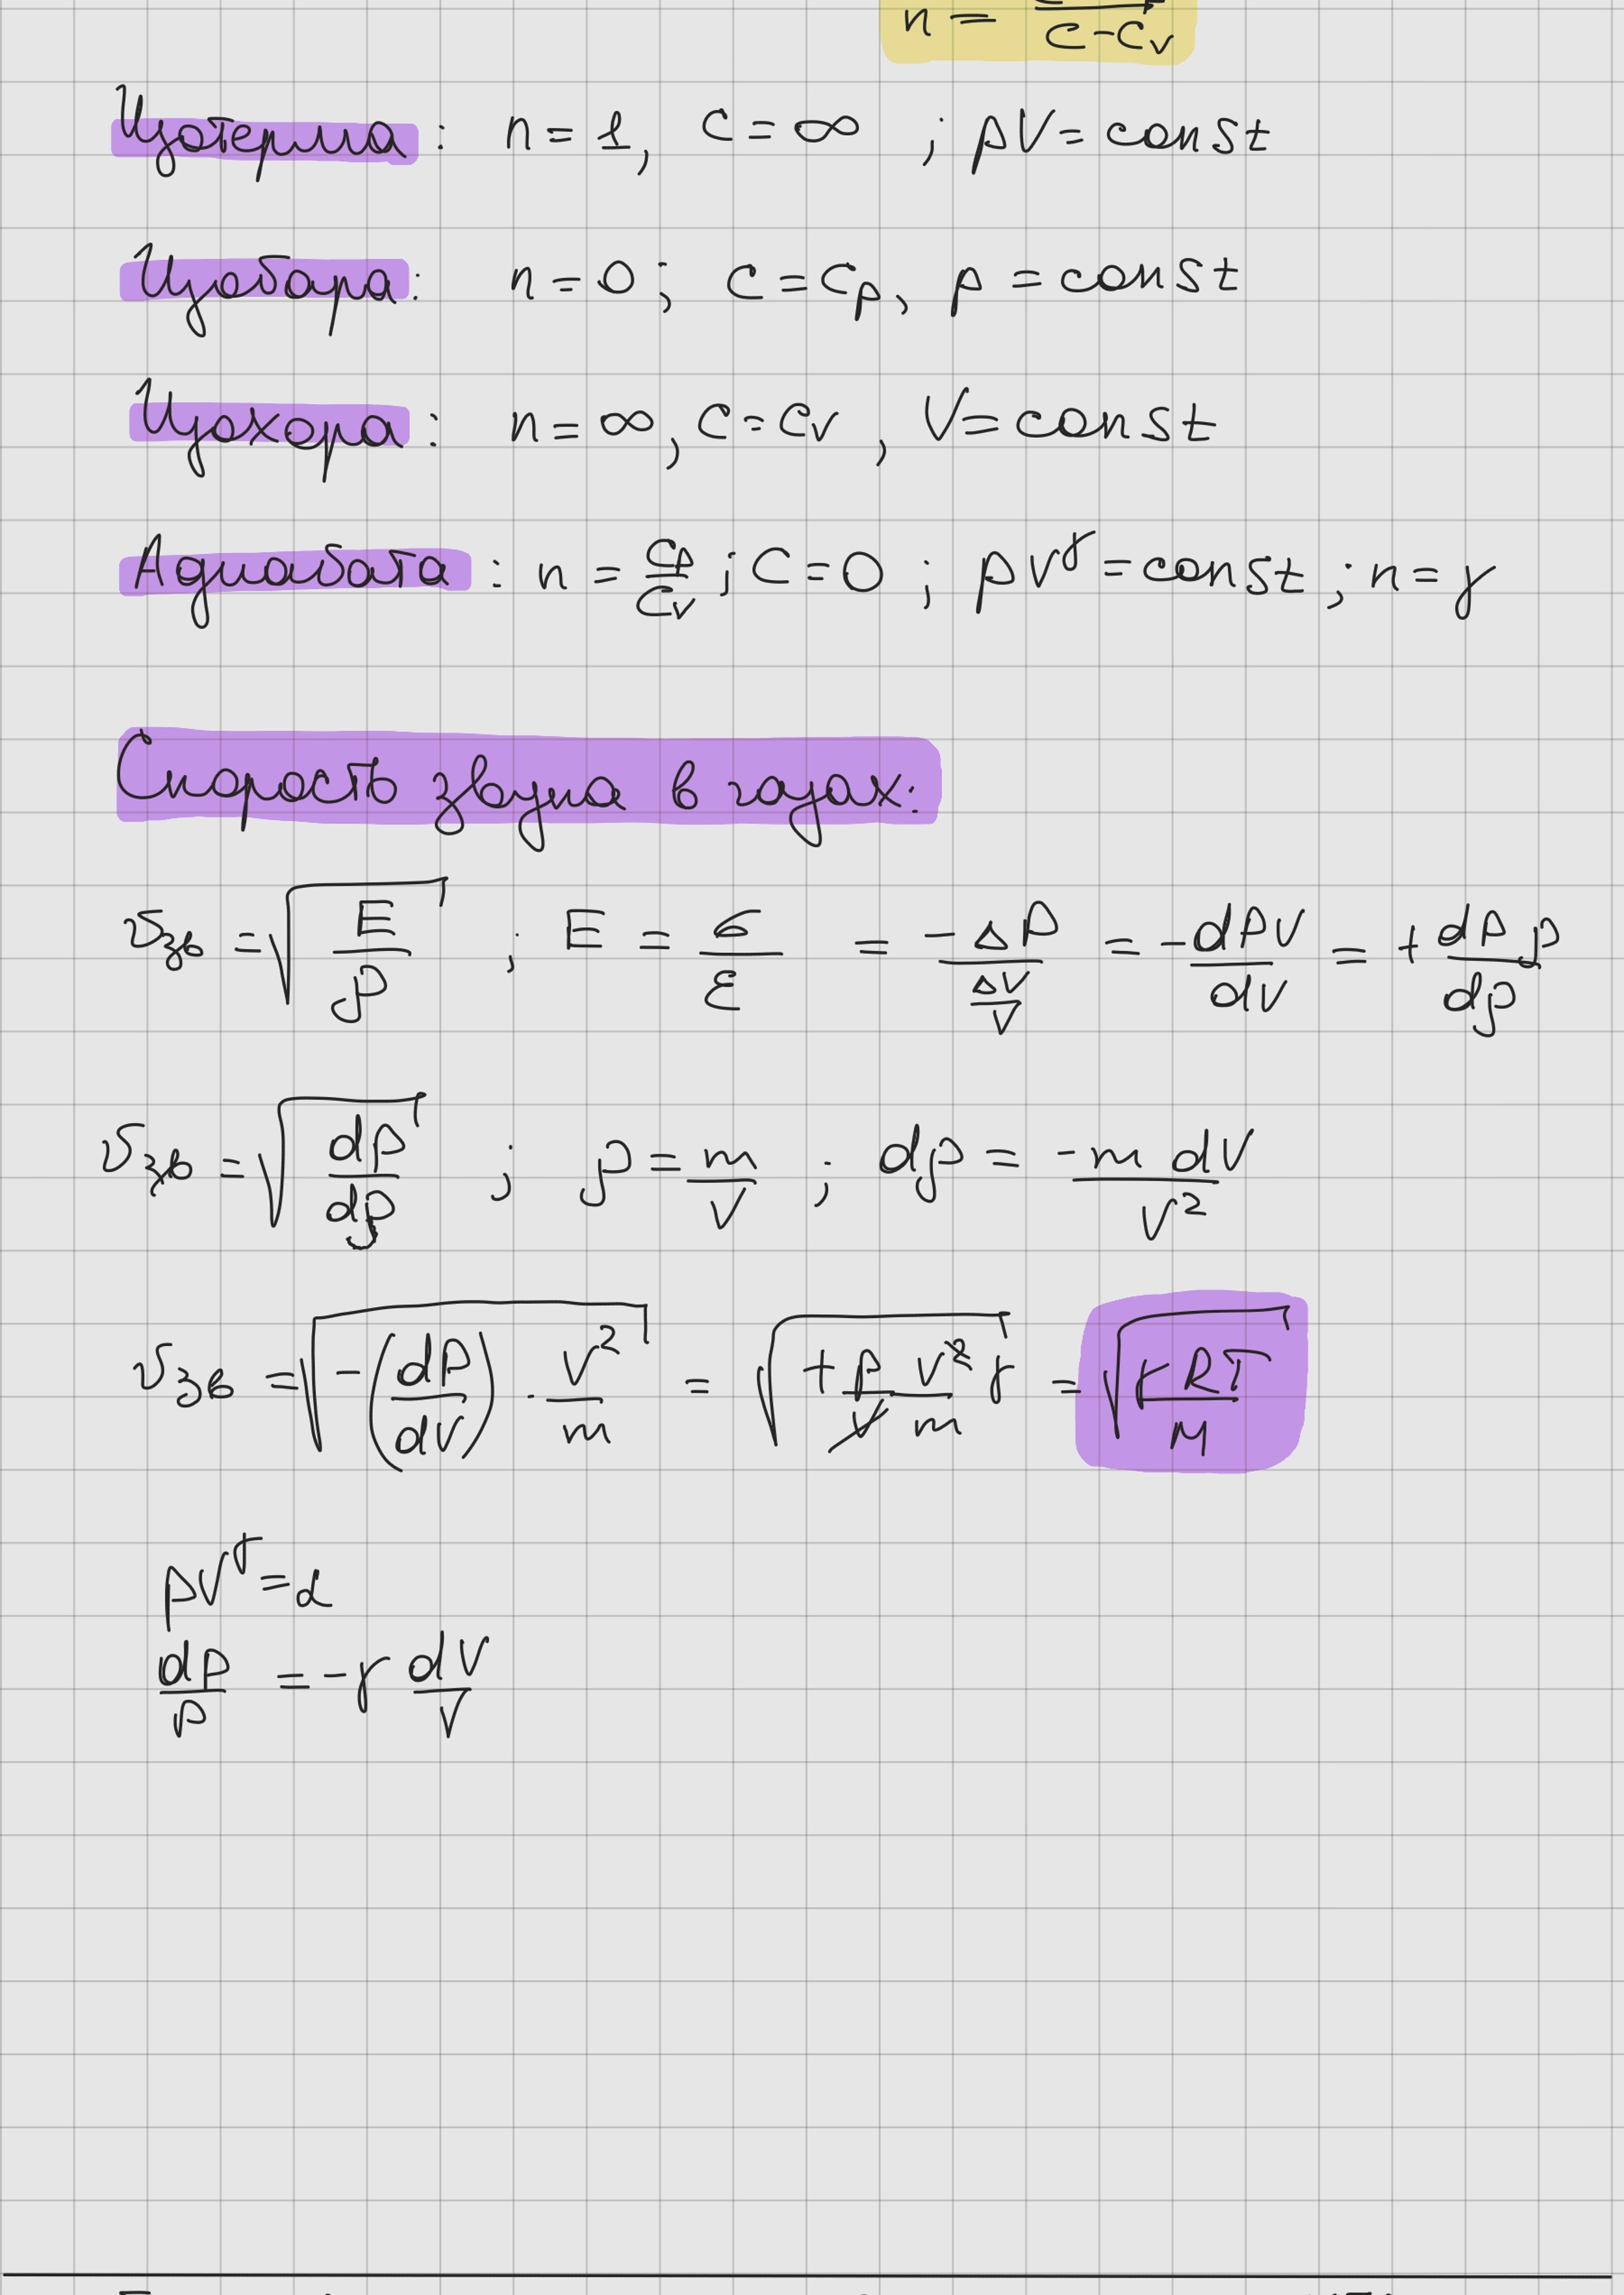 n = / C - Cv
Изотерма: n = 1, C = ∞ ; pV = const
Изобара: n = 0; C = Cp, p = const
Изохора: n = ∞, C = Cv, V = const
Адиабата: n = Cp/Cv; C = 0 ; pV^γ = const ; n = γ
Скорость звука в газах:
υзв = √(E/ρ) ; E = σ/ε = -ΔP/(ΔV/V) = -dPV/dV = + dP ρ/dρ
υзв = √(dp/dρ) ; ρ = m/V ; dρ = -m dV/V²
υзв = √(-(dP/dV) · V²/m) = √(+ p/V V²/m γ) = √(γ RT/M)
pV^γ = α
dp/p = -γ dV/V